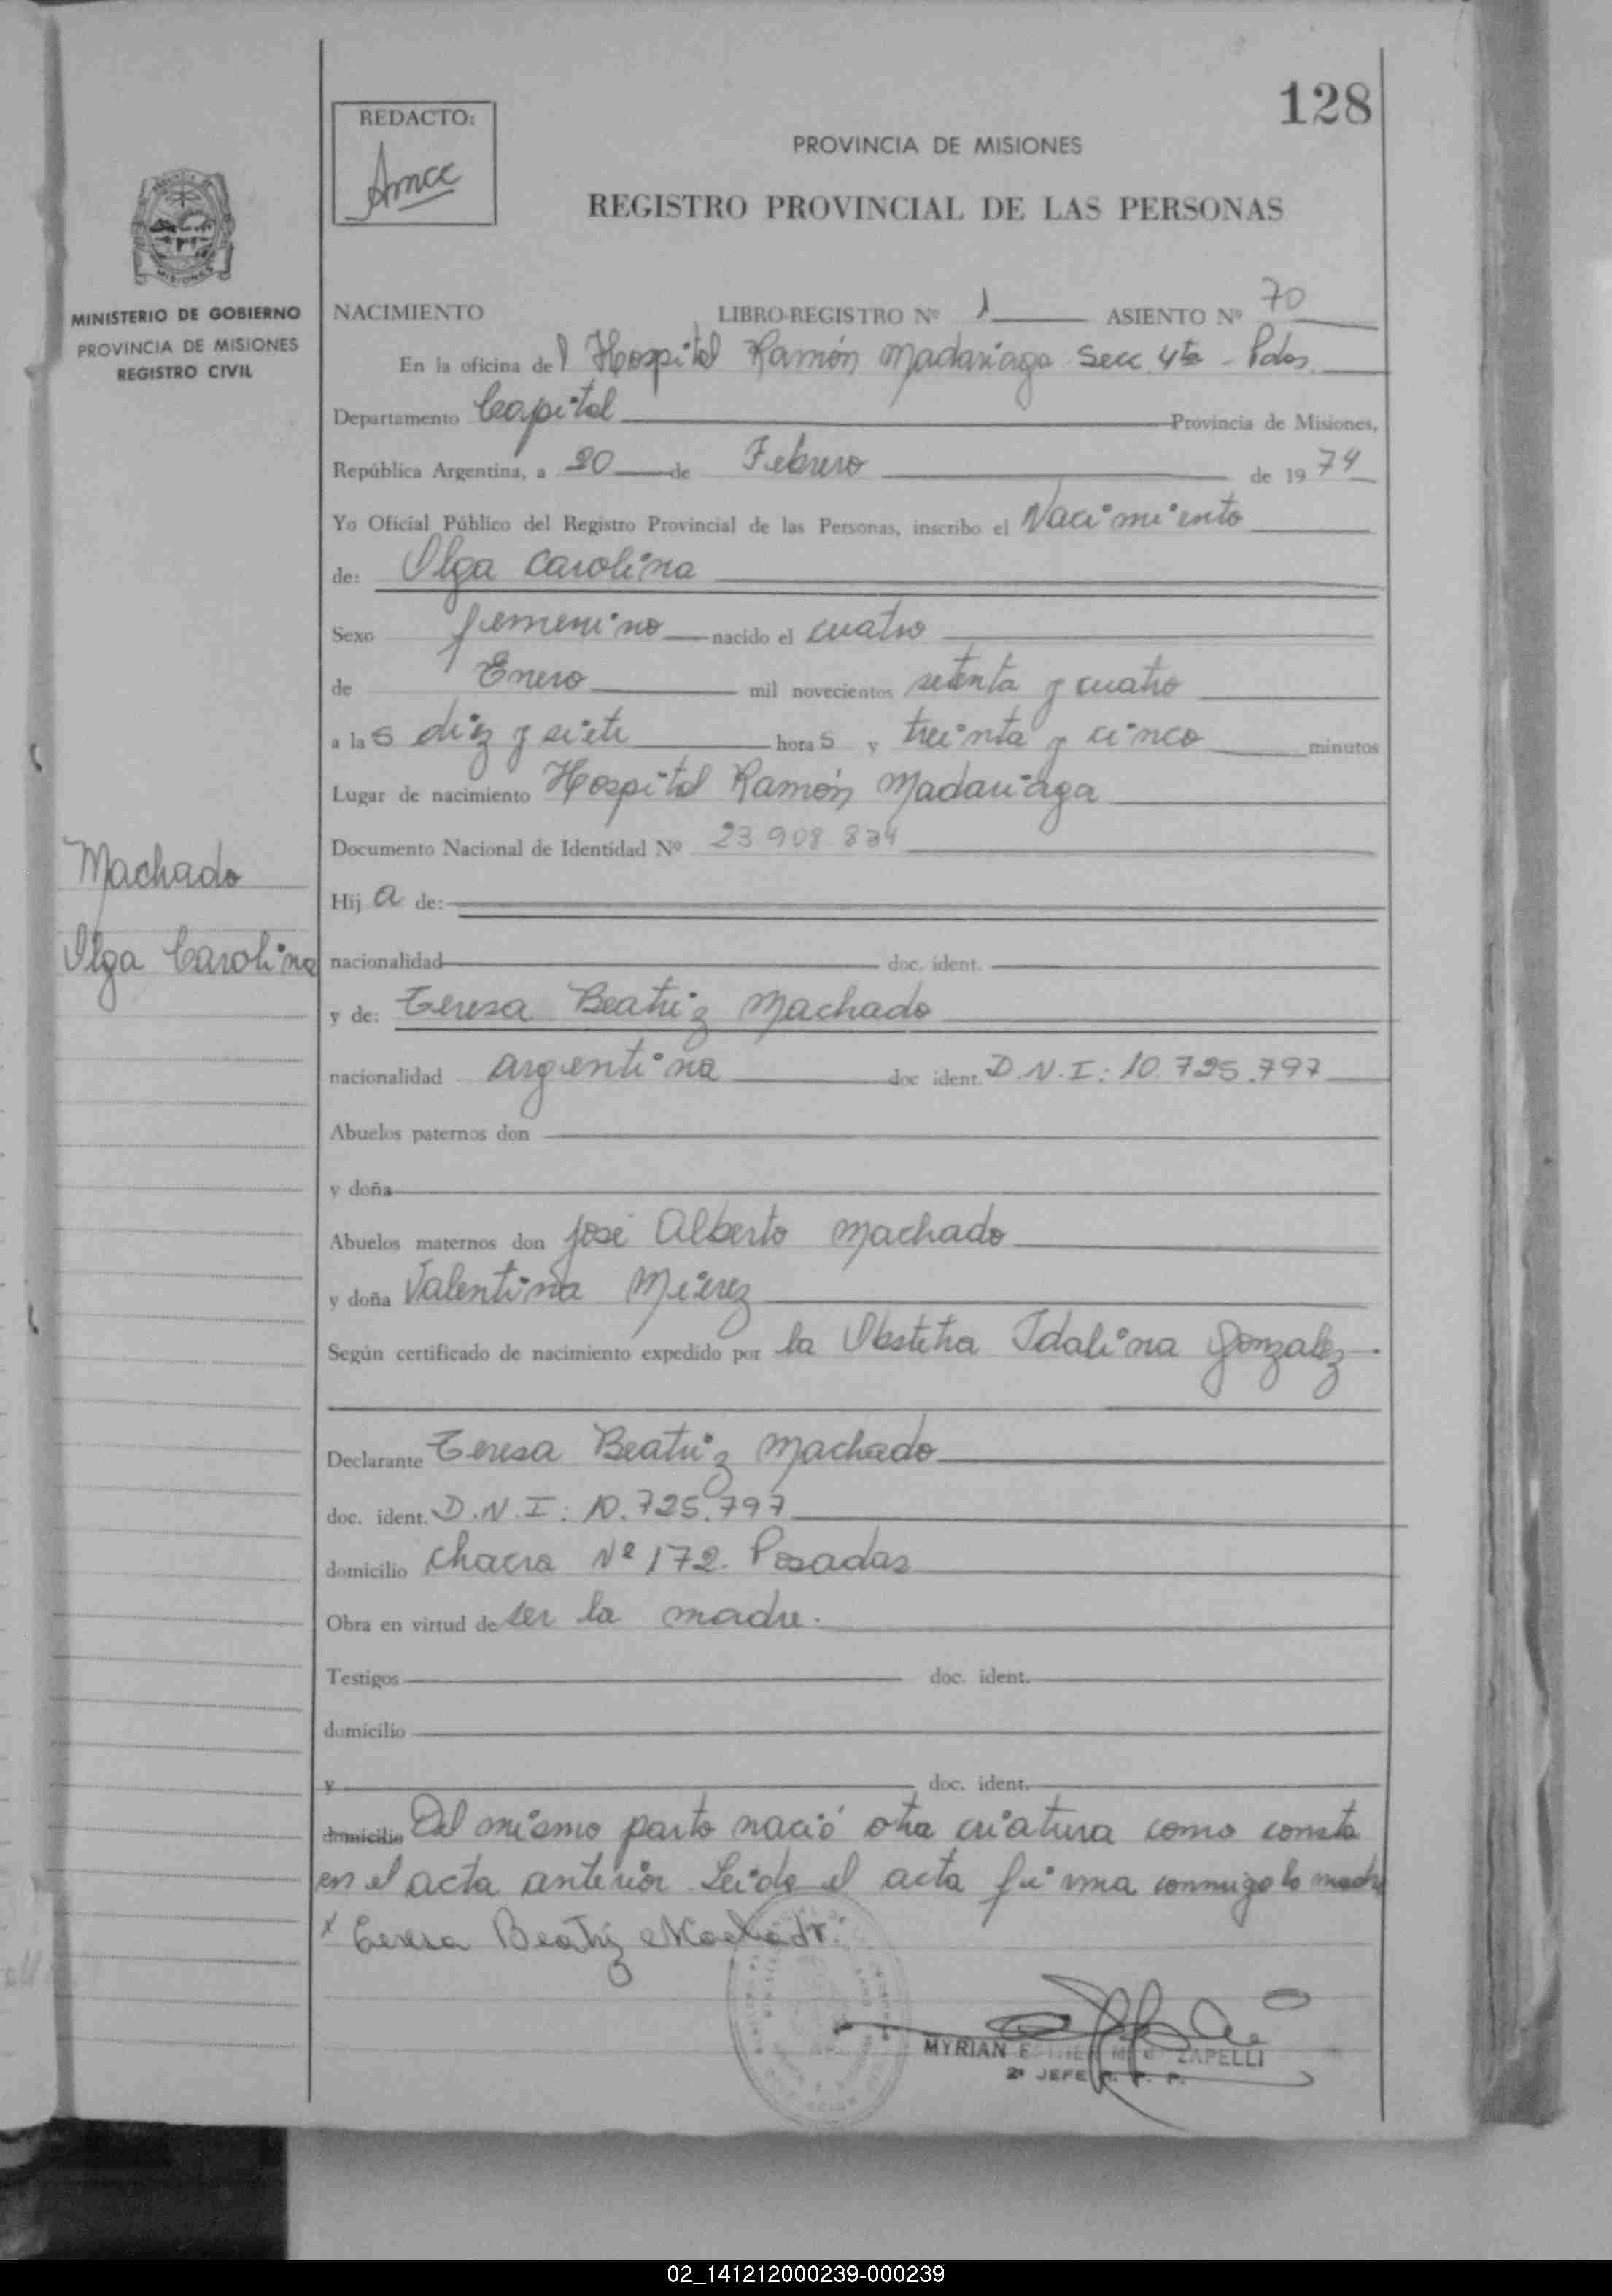 128
REDACTO:
Amcc
PROVINCIA DE MISIONES
REGISTRO PROVINCIAL DE LAS PERSONAS
MISIONES
MINISTERIO DE GOBIERNO
PROVINCIA DE MISIONES
REGISTRO CIVIL
NACIMIENTO LIBRO-REGISTRO Nº 1 ASIENTO Nº 70
En la oficina del Hospital Ramón Madariaga Secc. 4ta - Pdas.
Departamento Capital Provincia de Misiones,
República Argentina, a 20 de Febrero de 1974
Yo Oficial Público del Registro Provincial de las Personas, inscribo el Nacimiento
de: Olga Carolina
Sexo femenino nacido el cuatro
de Enero mil novecientos setenta y cuatro
a las diez y siete horas y treinta y cinco minutos
Lugar de nacimiento Hospital Ramón Madariaga
Documento Nacional de Identidad Nº 23 908 834
Machado
Olga Carolina
Hija de:
nacionalidad doc. ident.
y de: Teresa Beatriz Machado
nacionalidad argentina doc ident. D.N.I: 10.725.797
Abuelos paternos don
y doña
Abuelos maternos don José Alberto Machado
y doña Valentina Mierez
Según certificado de nacimiento expedido por la Obstetra Idalina Gonzalez.
Declarante Teresa Beatriz Machado
doc. ident. D.N.I: 10.725.797
domicilio Chacra Nº 172. Posadas
Obra en virtud de ser la madre.
Testigos doc. ident.
domicilio
y doc. ident.
domicilio Del mismo parto nació otra criatura como consta
en el acta anterior. Leída el acta firma conmigo la madre
x Teresa Beatriz Machado.
MYRIAN ESTHER ZAPELLI
2º JEFE R. P. P.
02_141212000239-000239